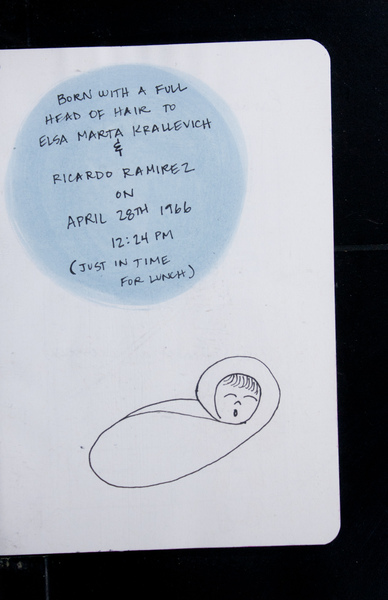 BORN WITH A FULL
HEAD OF HAIR TO
ELSA MARTA KRALLEVICH
&
RICARDO RAMIREZ
ON
APRIL 28TH 1966
12:24 PM
(JUST IN TIME
FOR LUNCH)